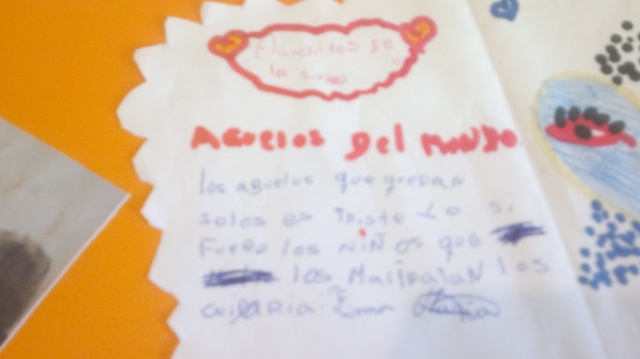 de
la
Aguelos del Mundo
los aguelos que quedan
solos es triste Lo si
Fuera los niños que
los Maltratan los
cuidaria